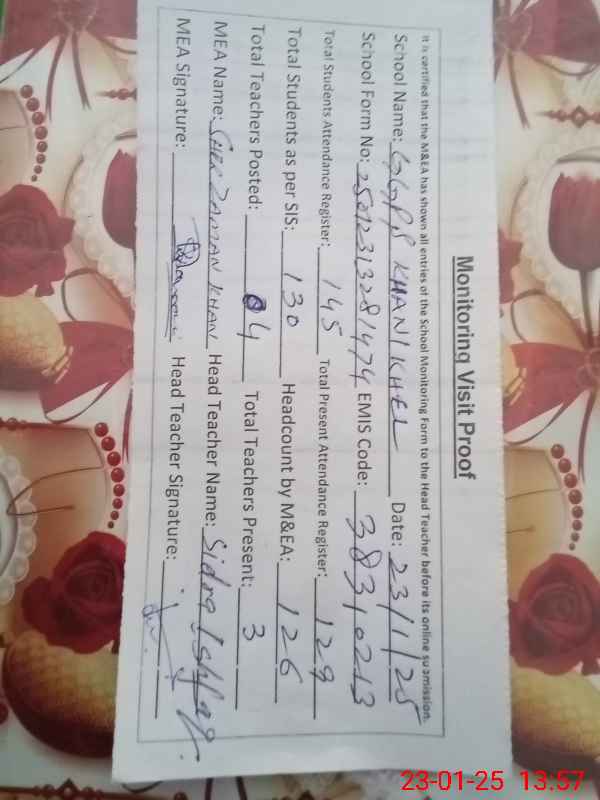 Monitoring Visit Proof
It is certified that the M&EA has shown all entries of the School Monitoring Form to the Head Teacher before its online submission.
School Name: GGPS KHANIKHEL Date: 23/1/25
School Form No: EMIS Code: 38310213
Total Students Attendance Register: 145 Total Present Attendance Register: 129
Total Students as per SIS: 130 Headcount by M&EA: 126
Total Teachers Posted: 4 Total Teachers Present: 3
MEA Name: SHER ZAMAN KHAN Head Teacher Name: Sidra Ishfaq
MEA Signature: Head Teacher Signature:
23-01-25 13:57